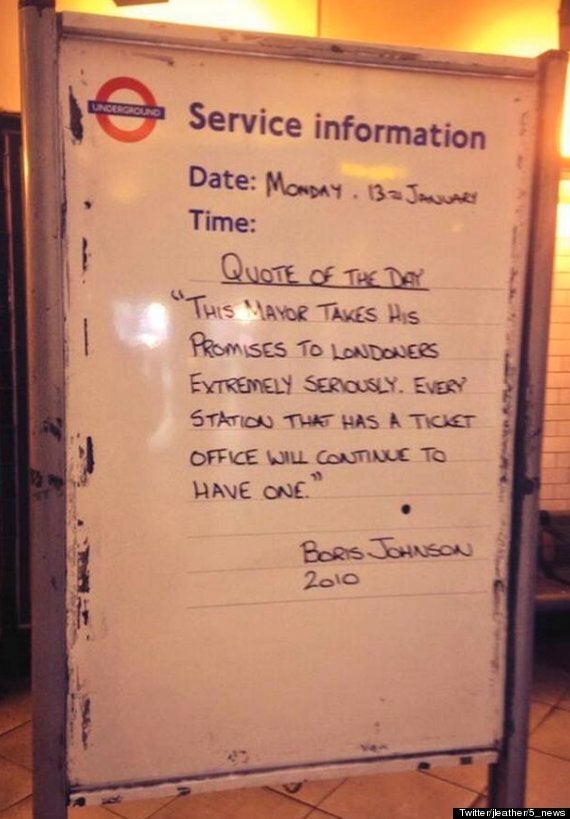 UNDERGROUND
Service information
Date: MONDAY. 13TH JANUARY
Time:
QUOTE OF THE DAY
"THIS MAYOR TAKES HIS
PROMISES TO LONDONERS
EXTREMELY SERIOUSLY. EVERY
STATION THAT HAS A TICKET
OFFICE WILL CONTINUE TO
HAVE ONE."
BORIS JOHNSON
2010
Twitter/jleather/5_news